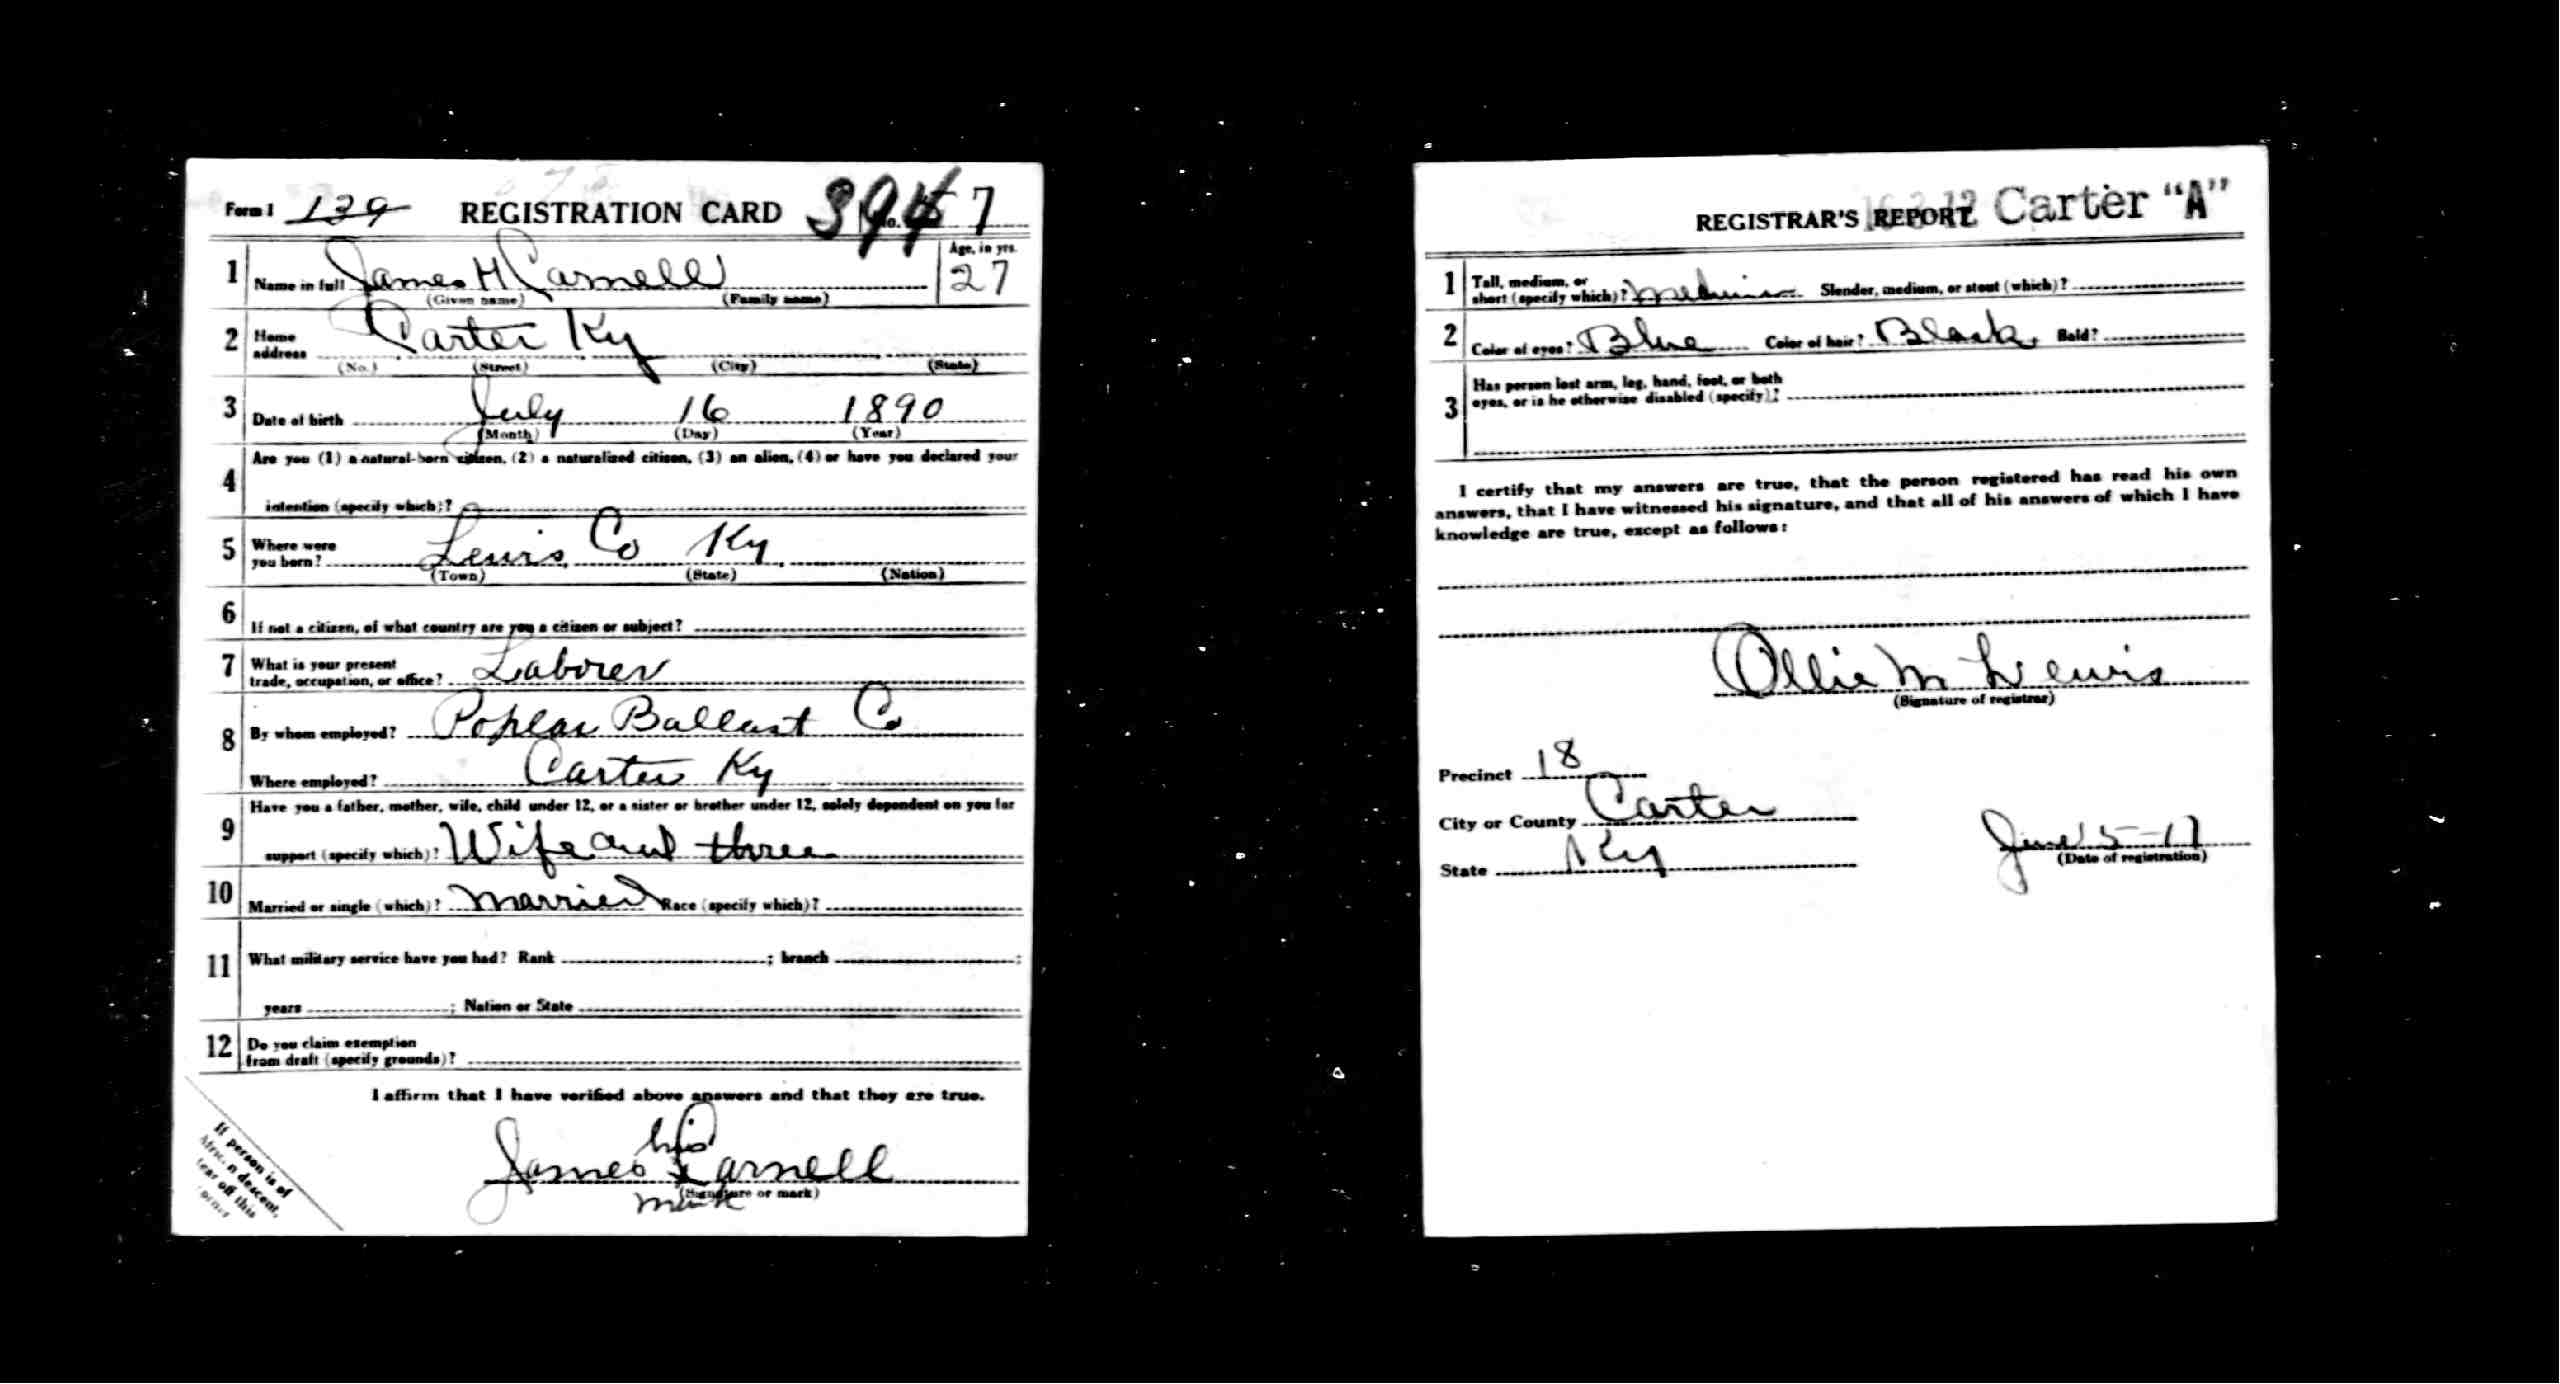 Form 1 139 REGISTRATION CARD No. 7
1 Name in full James H Carnell Age, in yrs. 27
(Given name) (Family name)
2 Home address Carter Ky
(No.) (Street) (City) (State)
3 Date of birth July 16 1890
(Month) (Day) (Year)
4 Are you (1) a natural-born citizen, (2) a naturalized citizen, (3) an alien, (4) or have you declared your
intention (specify which)?
5 Where were you born? Lewis Co Ky
(Town) (State) (Nation)
6 If not a citizen, of what country are you a citizen or subject?
7 What is your present
trade, occupation, or office? Laborer
8 By whom employed? Poplar Ballast Co
Where employed? Carter Ky
9 Have you a father, mother, wife, child under 12, or a sister or brother under 12, solely dependent on you for
support (specify which)? Wife and three
10 Married or single (which)? Married Race (specify which)?
11 What military service have you had? Rank ; branch ;
years ; Nation or State
12 Do you claim exemption
from draft (specify grounds)?
I affirm that I have verified above answers and that they are true.
his
James x Carnell
(Signature or mark)
mark
If person is of
African descent,
tear off this
corner
REGISTRAR'S REPORT Carter "A"
1 Tall, medium, or
short (specify which)? Medium Slender, medium, or stout (which)?
2 Color of eyes? Blue Color of hair? Black Bald?
3 Has person lost arm, leg, hand, foot, or both
eyes, or is he otherwise disabled (specify)?
I certify that my answers are true, that the person registered has read his own
answers, that I have witnessed his signature, and that all of his answers of which I have
knowledge are true, except as follows:
Ollie M Lewis
(Signature of registrar)
Precinct 18
City or County Carter
State Ky
June 5-17
(Date of registration)